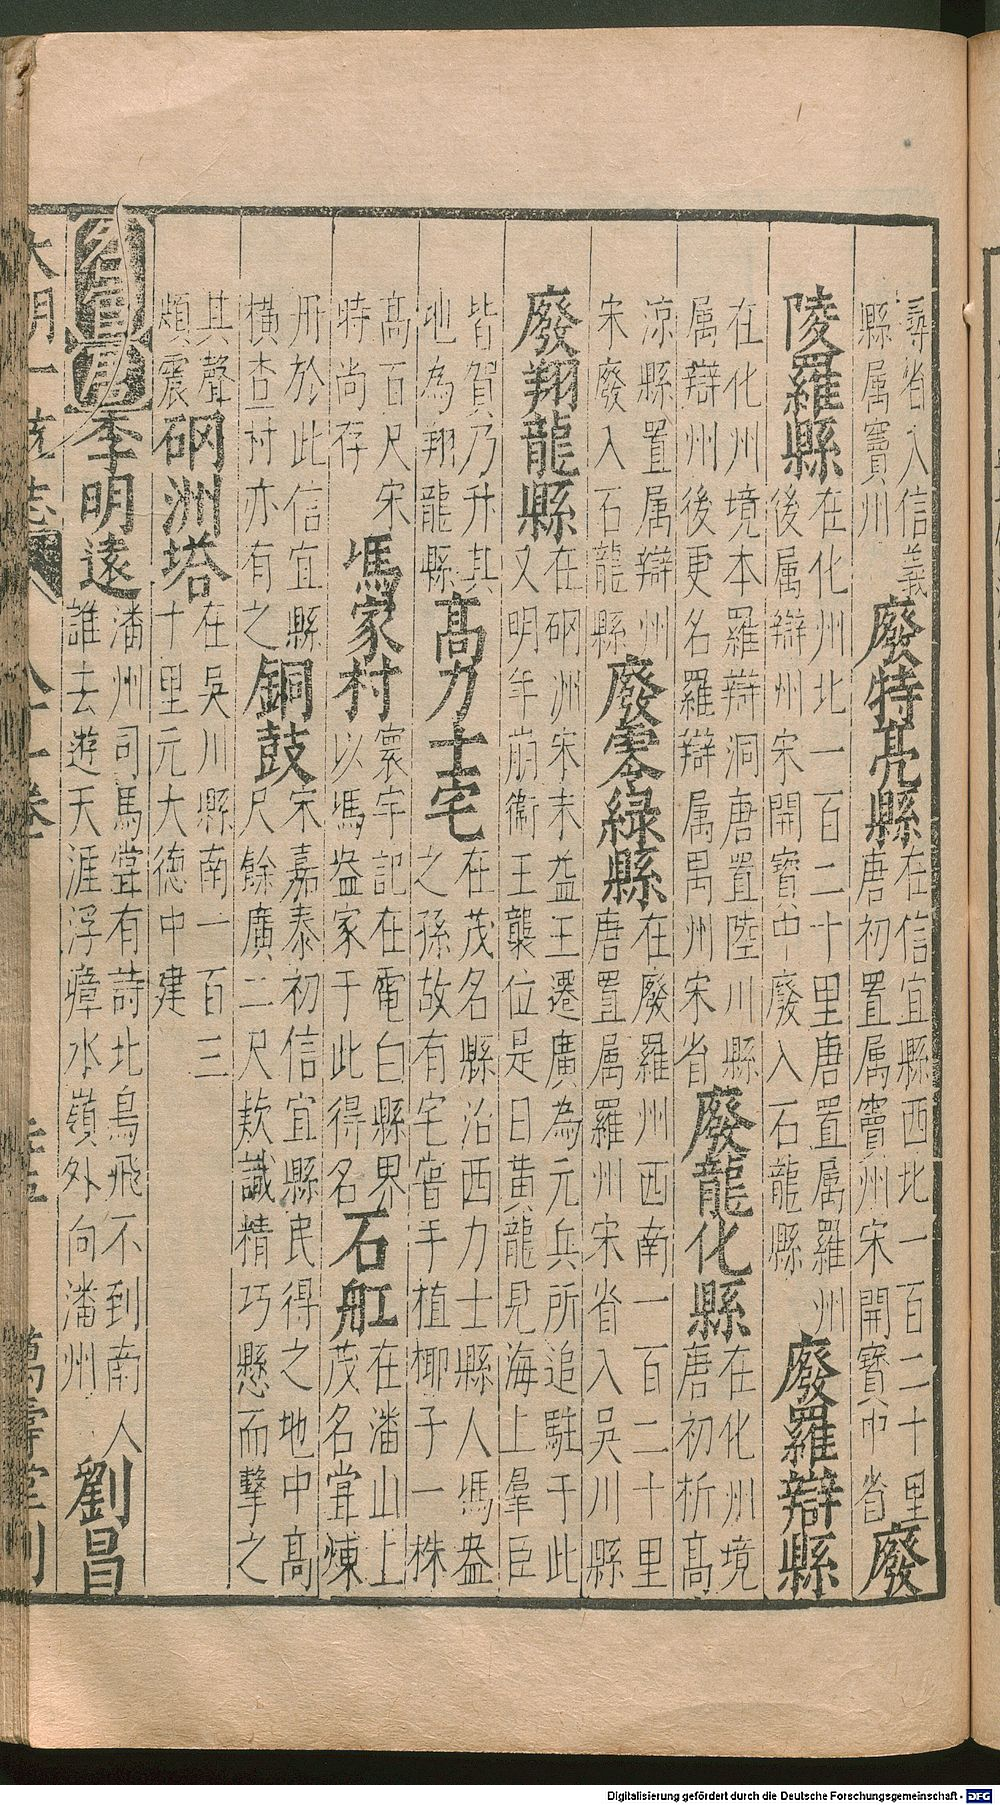 尋省入信義
縣属竇州
廢特亮縣
在信宜縣西北一百二十里
唐初置属竇州宋開寳中省
廢
陵羅縣
在化州北一百二十里唐置属羅州
後属辯州宋開寳中廢入石龍縣
廢羅辯縣
在化州境本羅辯洞唐置陸川縣
属辯州後更名羅辯属禺州宋省
廢龍化縣
在化州境
唐初析髙
凉縣置属辯州
宋廢入石龍縣
廢零緑縣
在廢羅州西南一百二十里
唐置属羅州宋省入吳川縣
廢翔龍縣
在硇洲宋末益王遷廣為元兵所追駐于此
又明年崩衛王襲位是日黄龍見海上羣臣
皆賀乃升其
地為翔龍縣
髙力士宅
在茂名縣治西力士縣人馮盎
之孫故有宅嘗手植椰子一株
髙百尺宋
時尚存
馮家村
寰宇記在電白縣界
以馮盎家于此得名
石舡
在潘山上
茂名甞煉
丹於此信宜縣
橫杏村亦有之
銅鼓
宋嘉泰初信宜縣民得之地中髙
尺餘廣二尺欵識精巧懸而擊之
其聲
頗震
硇洲塔
在吳川縣南一百三
十里元大徳中建
名宦
唐
李明遠
潘州司馬甞有詩北鳥飛不到南人
誰去遊天涯浮瘴水嶺外向潘州
劉昌
大明一統志
萬壽堂刊
Digitalisierung gefördert durch die Deutsche Forschungsgemeinschaft - DFG